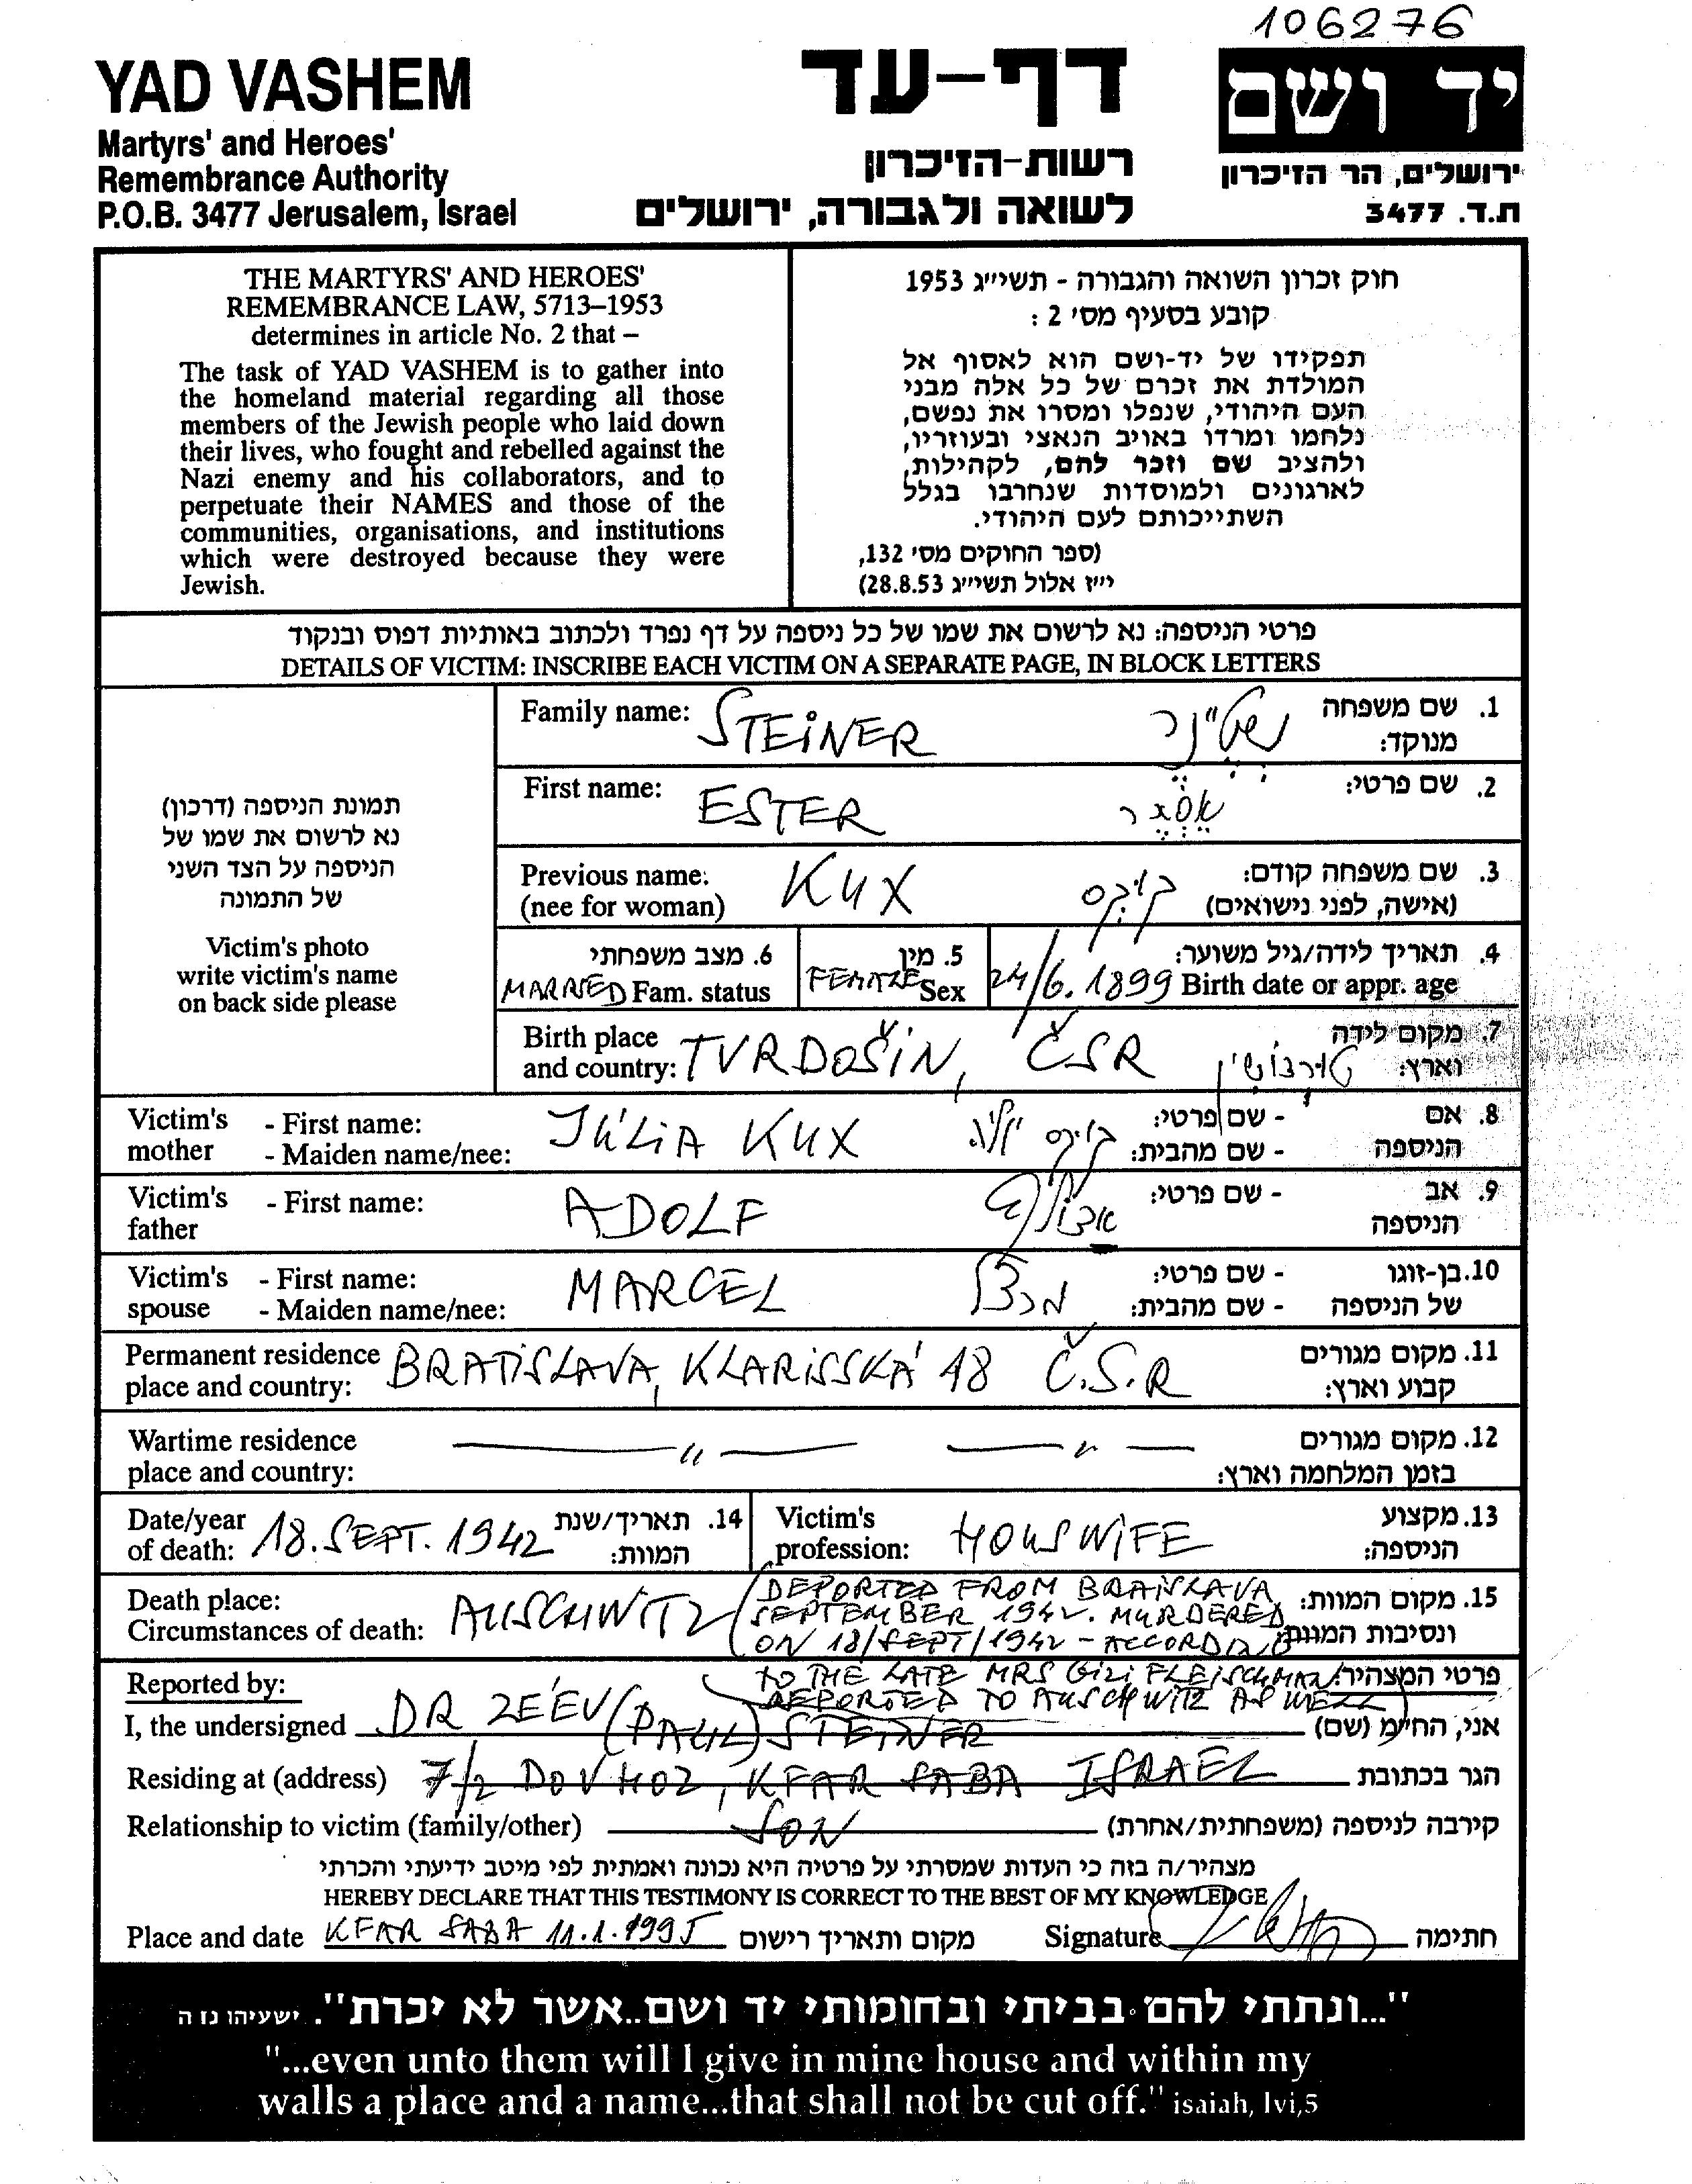 106276
YAD VASHEM
Martyrs' and Heroes'
Remembrance Authority
P.O.B. 3477 Jerusalem, Israel
דף-עד
רשות-הזיכרון
לשואה ולגבורה, ירושלים
יד ושם
ירושלים, הר הזיכרון
ת.ד. 3477
THE MARTYRS' AND HEROES'
REMEMBRANCE LAW, 5713–1953
determines in article No. 2 that –
The task of YAD VASHEM is to gather into
the homeland material regarding all those
members of the Jewish people who laid down
their lives, who fought and rebelled against the
Nazi enemy and his collaborators, and to
perpetuate their NAMES and those of the
communities, organisations, and institutions
which were destroyed because they were
Jewish.
חוק זכרון השואה והגבורה - תשי״ג 1953
קובע בסעיף מס׳ 2 :
תפקידו של יד-ושם הוא לאסוף אל
המולדת את זכרם של כל אלה מבני
העם היהודי, שנפלו ומסרו את נפשם,
נלחמו ומרדו באויב הנאצי ובעוזריו,
ולהציב שם וזכר להם, לקהילות,
לארגונים ולמוסדות שנחרבו בגלל
השתייכותם לעם היהודי.
(ספר החוקים מס׳ 132,
י״ז אלול תשי״ג 28.8.53)
פרטי הניספה: נא לרשום את שמו של כל ניספה על דף נפרד ולכתוב באותיות דפוס ובנקוד
DETAILS OF VICTIM: INSCRIBE EACH VICTIM ON A SEPARATE PAGE, IN BLOCK LETTERS
תמונת הניספה (דרכון)
נא לרשום את שמו של
הניספה על הצד השני
של התמונה
Victim's photo
write victim's name
on back side please
Family name: STEINER שטיינר 1. שם משפחה
מנוקד:
First name: ESTER אסתר 2. שם פרטי:
Previous name: KUX קוקס 3. שם משפחה קודם:
(nee for woman) (אישה, לפני נישואים)
6. מצב משפחתי 5. מין 4. תאריך לידה/גיל משוער:
MARRIED Fam. status FEMALE Sex 24/6.1899 Birth date or appr. age
Birth place 7. מקום לידה
and country: TVRDOŠIN, ČSR טורדושין וארץ:
Victim's - First name: JÚLIA KUX יוליה קוקס - שם פרטי: 8. אם
mother - Maiden name/nee: - שם מהבית: הניספה
Victim's - First name: ADOLF אדולף - שם פרטי: 9. אב
father הניספה
Victim's - First name: MARCEL מרצל - שם פרטי: 10. בן-זוגו
spouse - Maiden name/nee: - שם מהבית: של הניספה
Permanent residence BRATISLAVA, KLARISSKÁ 18 Č.S.R 11. מקום מגורים
place and country: קבוע וארץ:
Wartime residence — " — — " — 12. מקום מגורים
place and country: בזמן המלחמה וארץ:
Date/year 14. תאריך/שנת Victim's 13. מקצוע
of death: 18. SEPT. 1942 המוות: profession: HOUSWIFE הניספה:
Death place: 15. מקום המוות:
Circumstances of death: AUSCHWITZ ונסיבות המוות:
(DEPORTED FROM BRATISLAVA
SEPTEMBER 1942. MURDERED
ON 18/SEPT/1942 - ACCORDING
TO THE LATE MRS GIZI FLEISCHMAN
DEPORTED TO AUSCHWITZ AS WELL)
Reported by: פרטי המצהיר:
I, the undersigned DR ZEÉV (PAUL) STEINER אני, החי״מ (שם)
Residing at (address) 7/2 DOV HOZ, KFAR SABA ISRAEL הגר בכתובת
Relationship to victim (family/other) SON קירבה לניספה (משפחתית/אחרת)
מצהיר/ה בזה כי העדות שמסרתי על פרטיה היא נכונה ואמתית לפי מיטב ידיעתי והכרתי
HEREBY DECLARE THAT THIS TESTIMONY IS CORRECT TO THE BEST OF MY KNOWLEDGE
Place and date KFAR SABA 11.1.1995 מקום ותאריך רישום Signature חתימה
"...ונתתי להם בביתי ובחומותי יד ושם..אשר לא יכרת". ישעיהו נז ה
"...even unto them will I give in mine house and within my
walls a place and a name...that shall not be cut off." isaiah, lvi,5